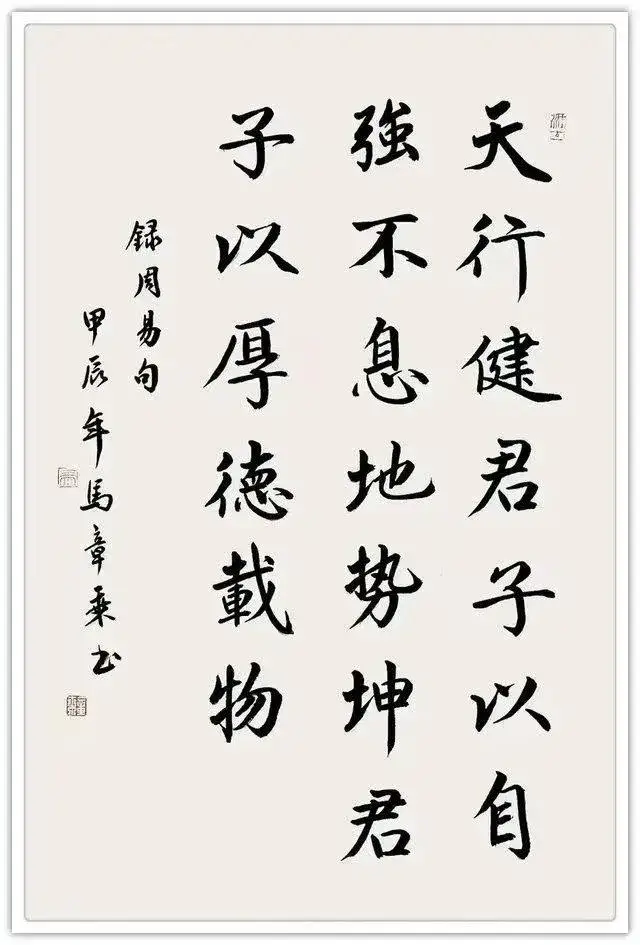 天行健君子以自
強不息地势坤君
子以厚德載物
録周易句
甲辰年馬章乘书